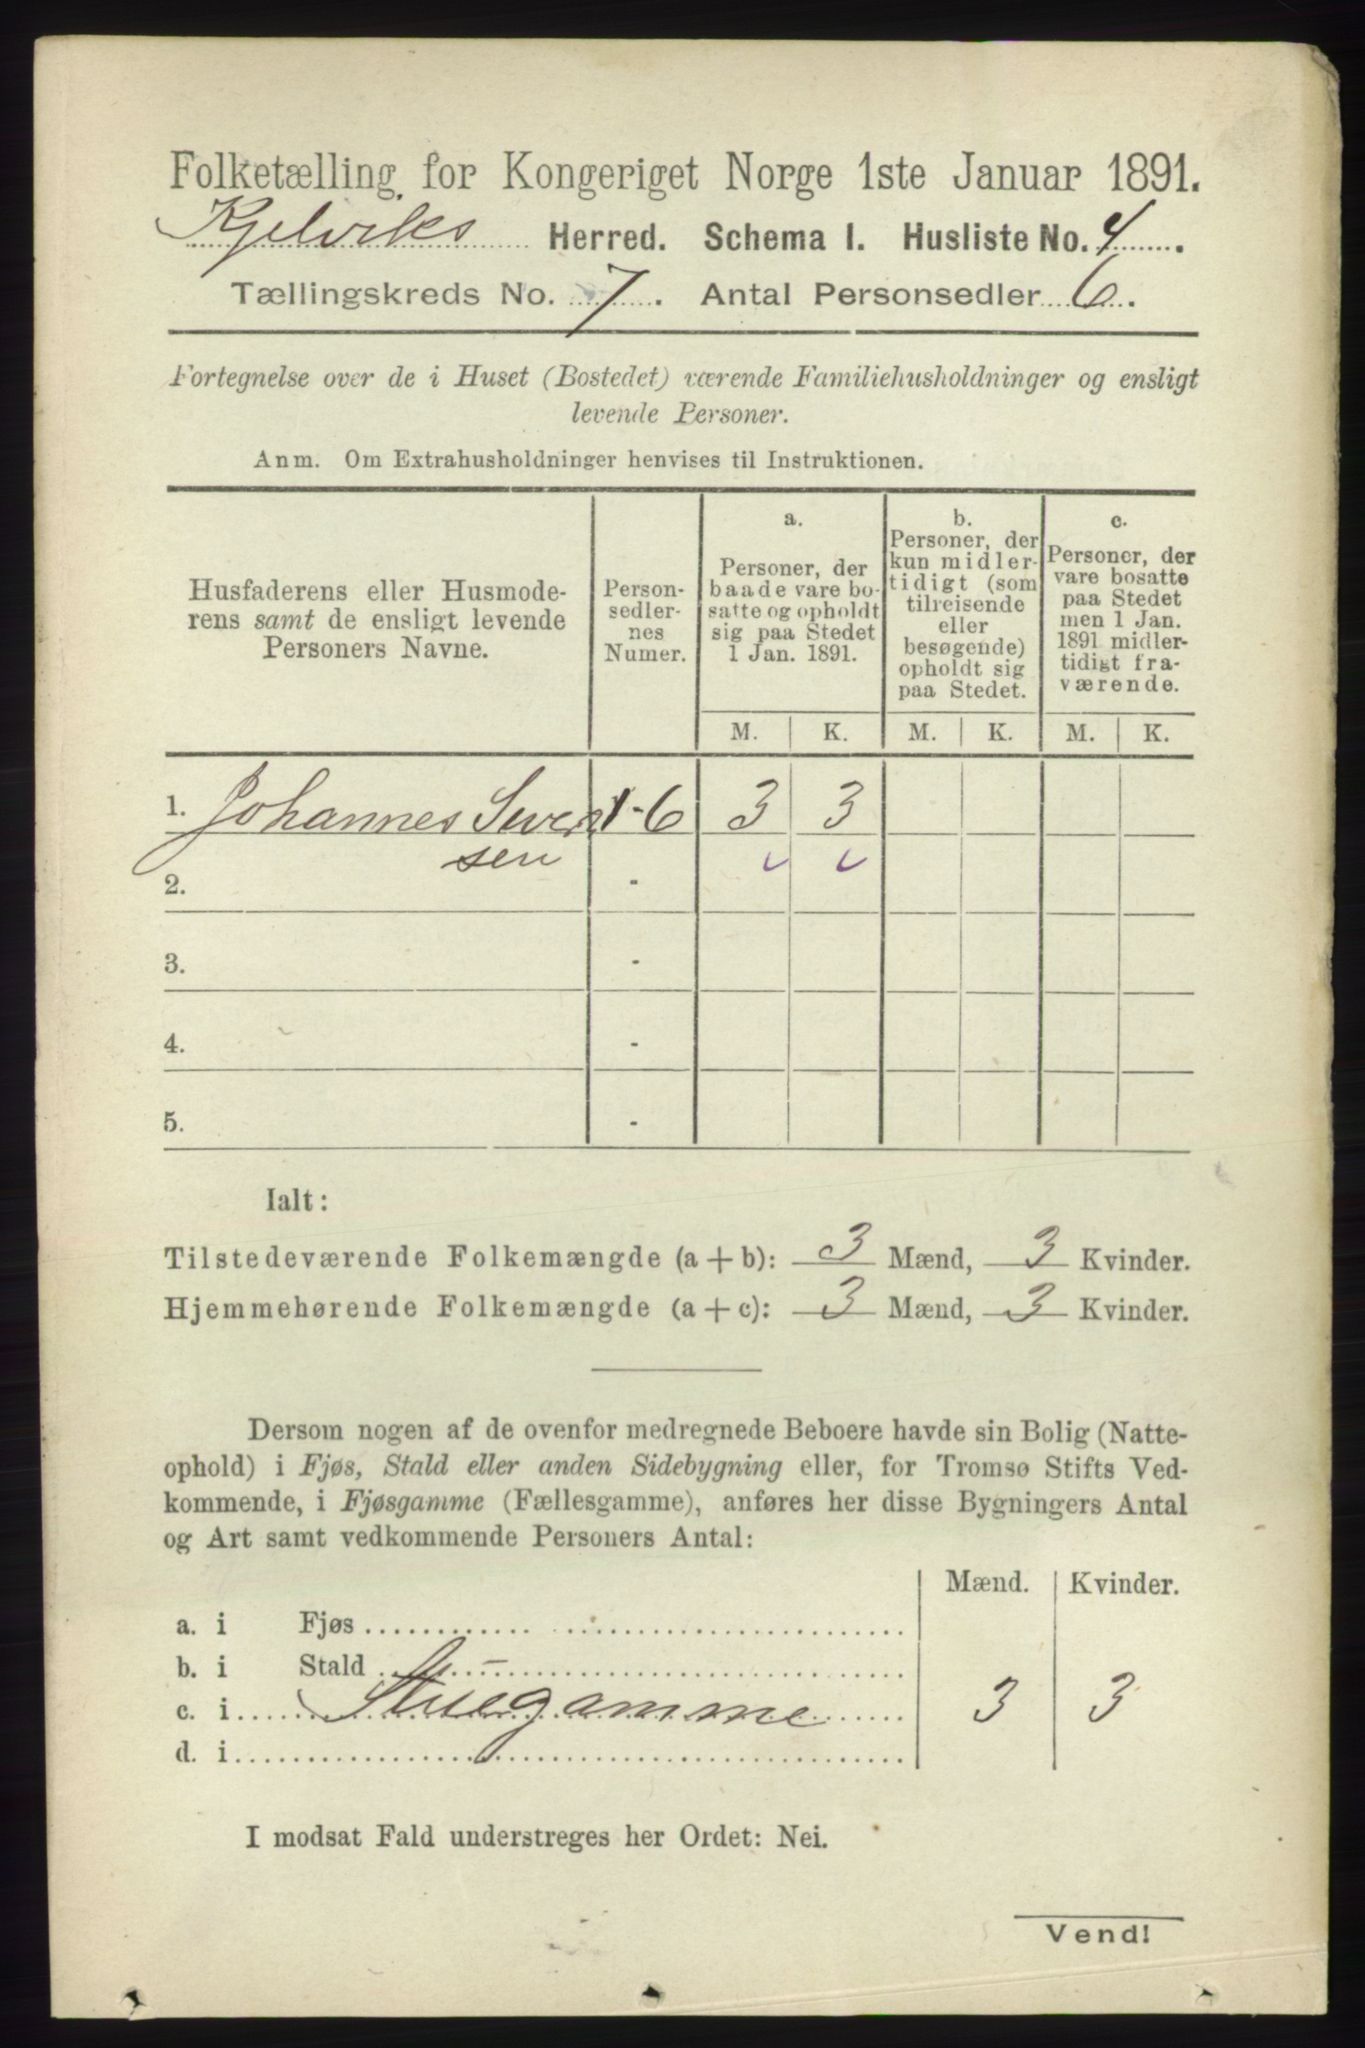 Folketælling for Kongeriget Norge 1ste Januar 1891.
Kjelviks Herred. Schema I. Husliste No. 4.
Tællingskreds No. 7. Antal Personsedler 6.
Fortegnelse over de i Huset (Bostedet) værende Familiehusholdninger og ensligt
levende Personer.
Anm. Om Extrahusholdninger henvises til Instruktionen.
Husfaderens eller Husmode-
rens samt de ensligt levende
Personers Navne.
Person-
sedler-
nes
Numer.
a.
Personer, der
baade vare bo-
satte og opholdt
sig paa Stedet
1 Jan. 1891.
b.
Personer, der
kun midler-
tidigt (som
tilreisende
eller
besøgende)
opholdt sig
paa Stedet.
c.
Personer, der
vare bosatte
paa Stedet
men 1 Jan.
1891 midler-
tidigt fra-
værende.
M. K. M. K. M. K.
1. Johannes Sven 1-6 3 3
sen
2. -
3. -
4. -
5. -
Ialt:
Tilstedeværende Folkemængde (a + b): 3 Mænd, 3 Kvinder.
Hjemmehørende Folkemængde (a + c): 3 Mænd, 3 Kvinder.
Dersom nogen af de ovenfor medregnede Beboere havde sin Bolig (Natte-
ophold) i Fjøs, Stald eller anden Sidebygning eller, for Tromsø Stifts Ved-
kommende, i Fjøsgamme (Fællesgamme), anføres her disse Bygningers Antal
og Art samt vedkommende Personers Antal:
Mænd. Kvinder.
a. i Fjøs
b. i Stald
c. i Stuegamme 3 3
d. i
I modsat Fald understreges her Ordet: Nei.
Vend!